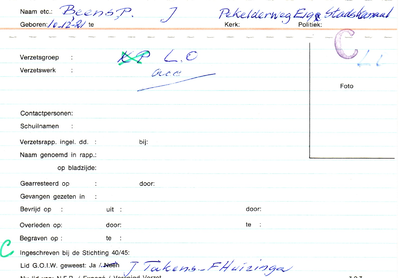 Naam etc.: Beens, P. J Pekelderweg E199 Stadskanaal
Geboren: 10.12.21 te Kerk: Politiek:
C
Verzetsgroep : KP L.O
Verzetswerk :
Foto
Contactpersonen:
Schuilnamen :
Verzetsrapp. ingel. dd. : bij:
Naam genoemd in rapp.:
op bladzijde:
Gearresteerd op : door:
Gevangen gezeten in :
Bevrijd op : uit : door:
Overleden op : door: te :
Begraven op : te :
C Ingeschreven bij de Stichting 40/45:
Lid G.O.I.W. geweest: Ja / Neen J Takens - F Huizinga